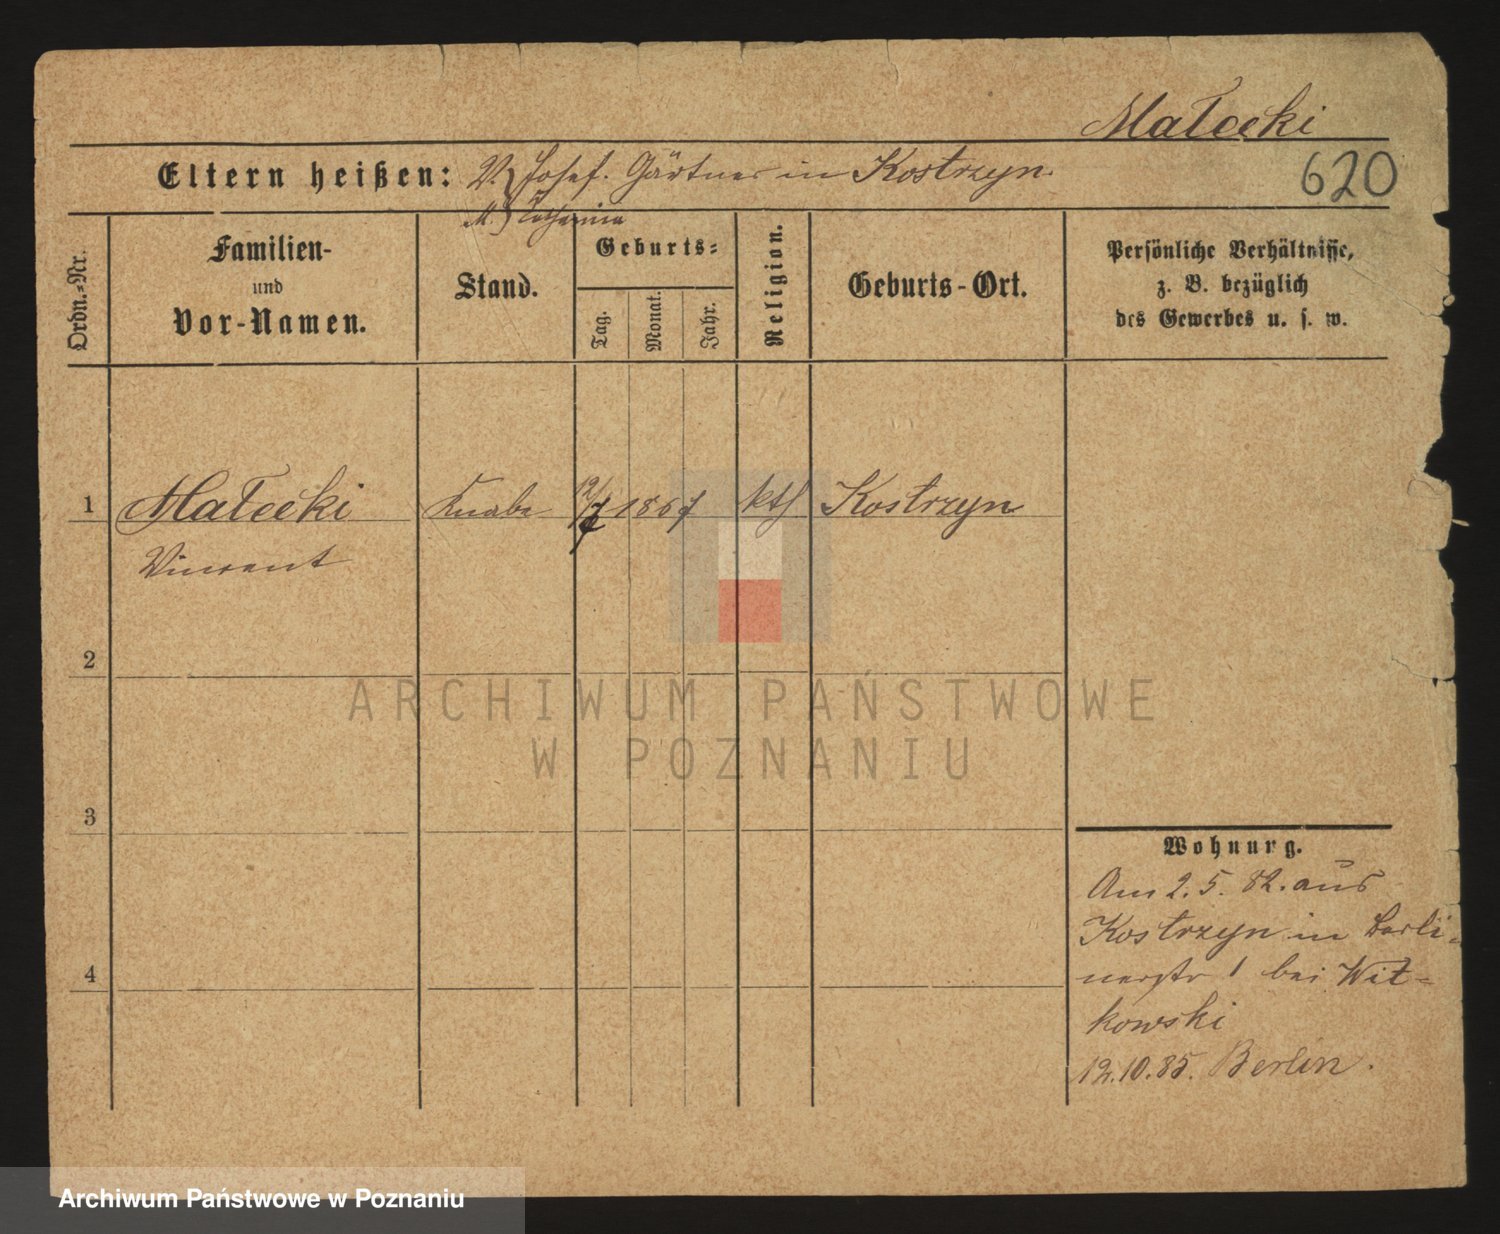 Małecki
Eltern heißen: V. Josef. Gärtner in Kostrzyn
620
M. Catharina
Ordn.-Nr.
Familien-
und
Vor-Namen.
Stand.
Geburts-
Tag.
Monat.
Jahr.
Religion.
Geburts-Ort.
Persönliche Verhältnisse,
z. B. bezüglich
des Gewerbes u. s. w.
1 Małecki Knabe 1867 kth Kostrzyn
Vincent
2
3
4
Wohnung.
Am 2.5.82. aus
Kostrzyn in Berli-
nerstr 1 bei Wit-
kowski
12.10.85. Berlin.
ARCHIWUM PAŃSTWOWE
W POZNANIU
Archiwum Państwowe w Poznaniu